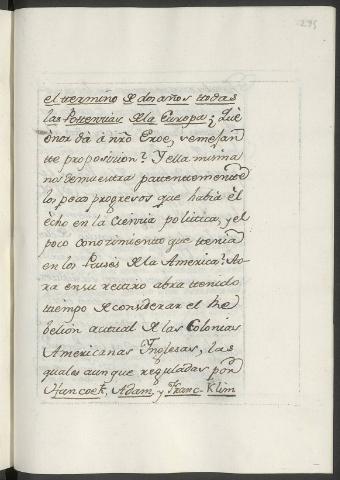 295
el termino de dos años todas
las Potencias de la Europa; Què
ònor dà à nrõ Eroe, semejan
te proposicion? Y ella misma
nos demuestra patentemente
los pocos progresos que habia èl
echo en la Ciencia politica, y el
poco conocimiento que tenia
en los Paises de la America? Ao-
ra en su retiro abra tenido
tiempo de considerar el Re
belion actual de las Colonias
Americanas Ynglesas, las
quales aunque reguladas por
Hancoek, Adam, y Franc-Klim